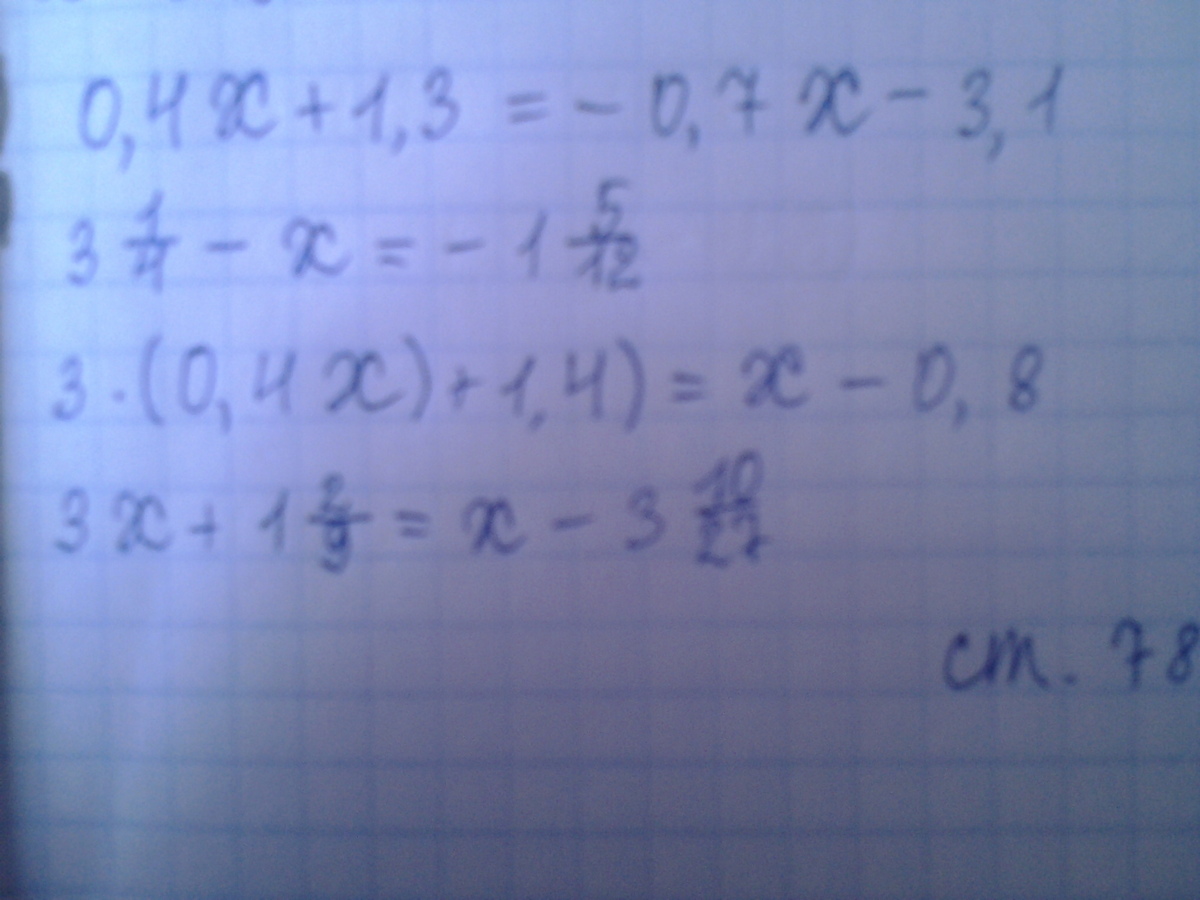 0,4x+1,3 = -0,7x-3,1
3 1/4 - x = -1 5/12
3·(0,4x)+1,4) = x-0,8
3x+1 2/9 = x-3 10/27
ст. 78